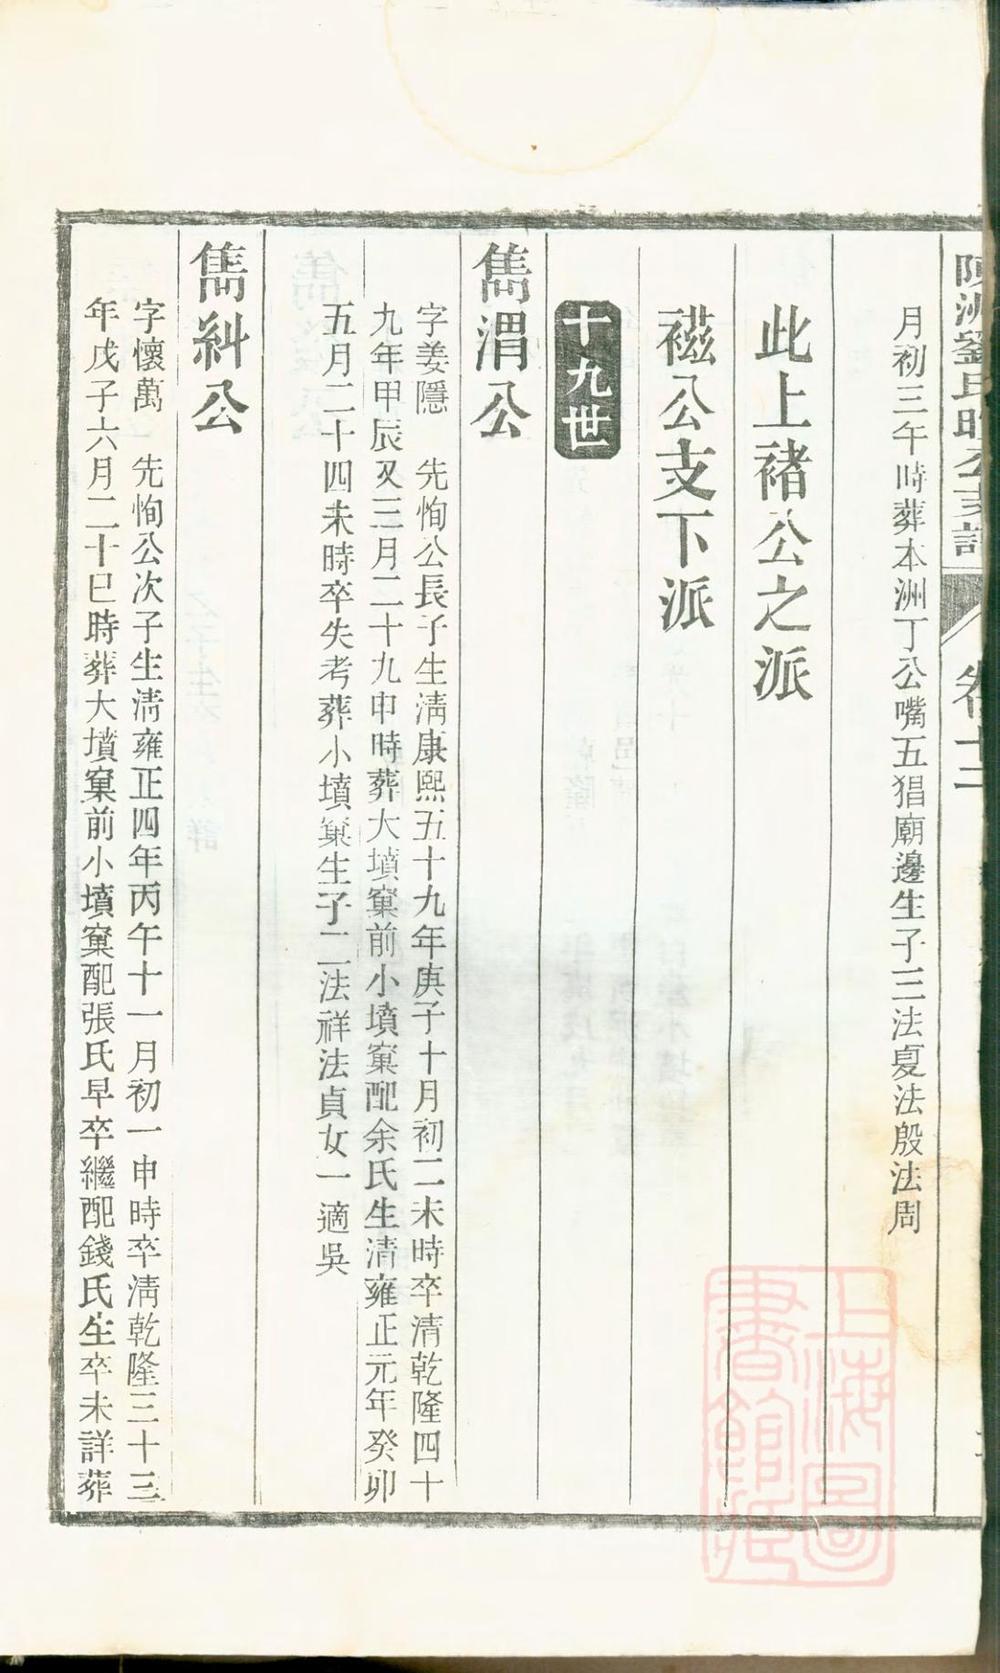 陳洲劉氏暄公支譜
卷十二
月初三午時葬本洲丁公嘴五猖廟邊生子三法夏法殷法周
此上褚公之派
禌公支下派
十九世
雋渭公
字姜隱　先恂公長子生淸康熙五十九年庚子十月初二未時卒清乾隆四十
九年甲辰又三月二十九申時葬大墳窠前小墳窠配余氏生清雍正元年癸卯
五月二十四未時卒失考葬小墳窠生子二法祥法貞女一適吳
雋糾公
字懷萬　先恂公次子生清雍正四年丙午十一月初一申時卒淸乾隆三十三
年戊子六月二十巳時葬大墳窠前小墳窠配張氏早卒繼配錢氏生卒未詳葬
上海圖
書館藏